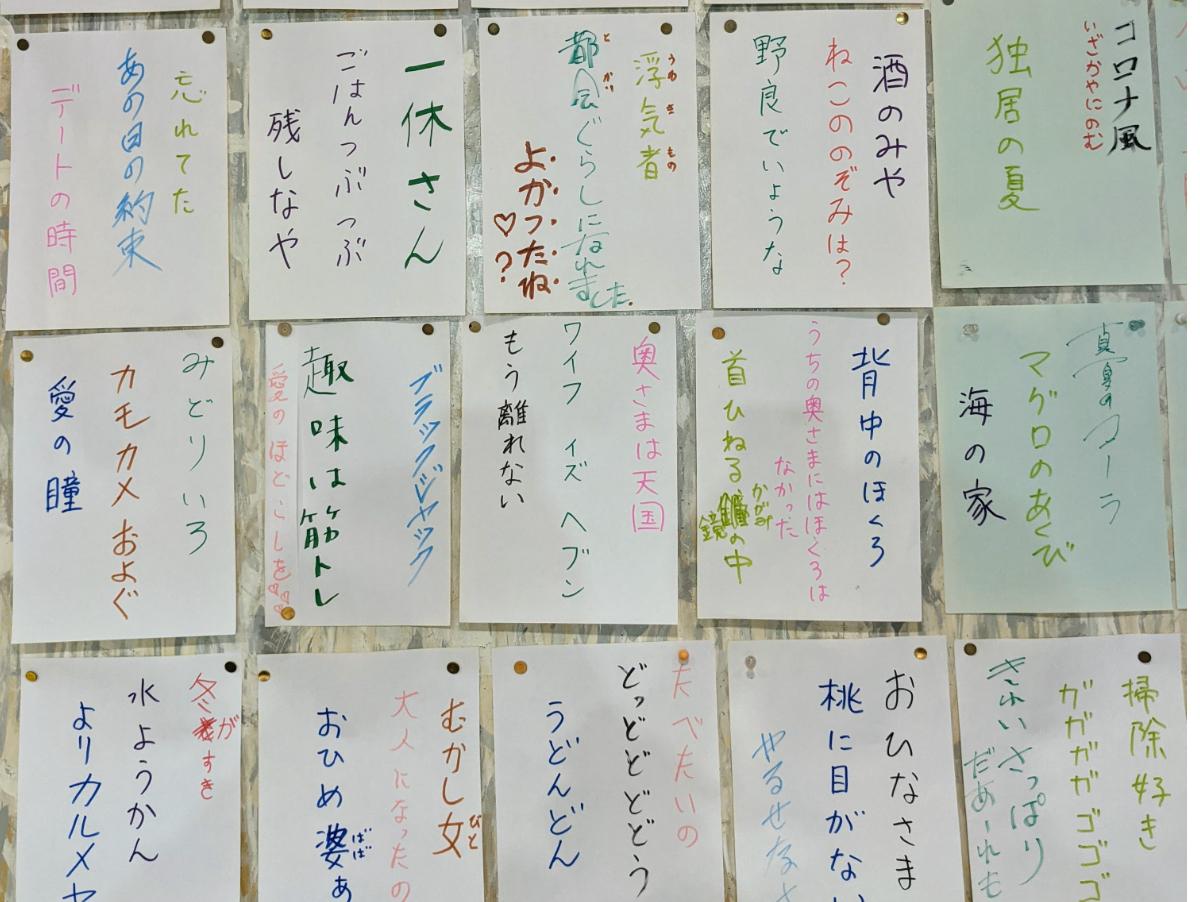 コロナ風
いざかやにのむ
独居の夏
酒のみや
ねこののぞみは?
野良でいような
浮気者
うわきもの
都会ぐらしになれました。
とかい
よかったね♡?
一休さん
ごはんつぶつぶ
残しなや
忘れてた
あの日の約束
デートの時間
真夏の
マグロのあくび
海の家
背中のほくろ
うちの奥さまにはほくろは
なかった
首ひねる
鏡の中
かがみ
奥さまは天国
ワイフ イズ ヘブン
もう離れない
ブラックジャック
趣味は筋トレ
愛のほどこしを♡♡
みどりいろ
カモカメおよぐ
愛の瞳
掃除好き
ガガガガゴゴゴ
きれいさっぱり
だあーれも
おひなさま
桃に目がない
やるせなさ
たべたいの
どっどどどどう
うどんどん
むかし女
びと
大人になったの
おひめ婆ぁ
ばば
冬がすき
水ようかん
よりカルメヤ